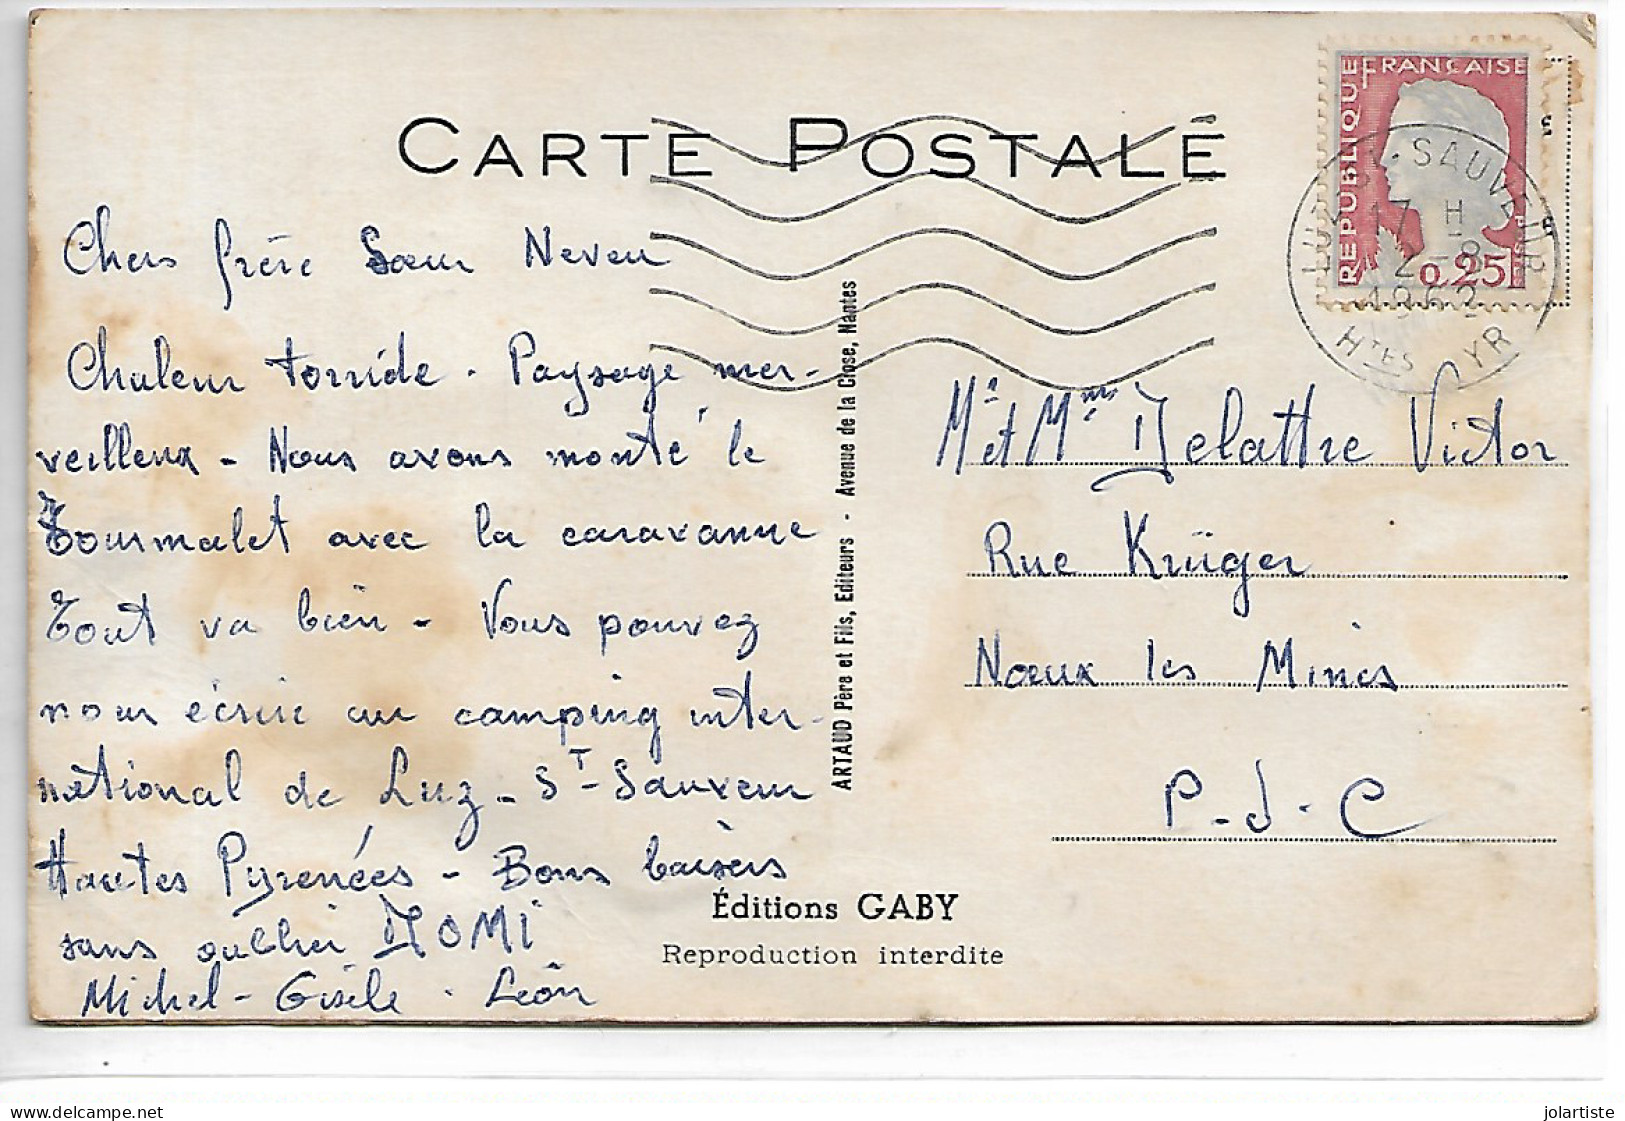 CARTE POSTALE
RÉPUBLIQUE FRANÇAISE
0,25
LUZ-ST-SAUVEUR
17 H
2-8
1962
HTES PYR
Chers frère Sœur Neveu
Chaleur torride. Paysage mer-
veilleux - Nous avons monté le
Tourmalet avec la caravanne
Tout va bien - Vous pouvez
nous écrire au camping inter-
national de Luz - ST-Sauveur
Hautes Pyrénées - Bons baisers
sans oublier MOMI
Michel - Gisèle . Léon
ARTAUD Père et Fils, Editeurs - Avenue de la Close, Nantes
Mr et Mme Delattre Victor
Rue Krüger
Nœux les Mines
P.d.C
Éditions GABY
Reproduction interdite
delcampe.net
jolartiste